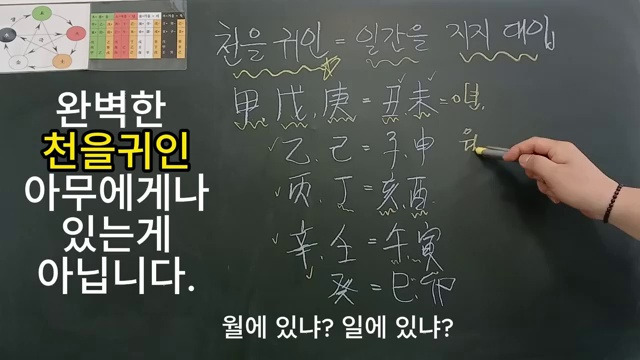 천을 귀인 = 일간을 지지 대입
甲.戊.庚 = 丑未 = 년.
乙.己 = 子.申 월
丙.丁 = 亥.酉.
辛.壬 = 午.寅
癸 = 巳.卯
완벽한
천을귀인
아무에게나
있는게
아닙니다.
월에 있냐? 일에 있냐?